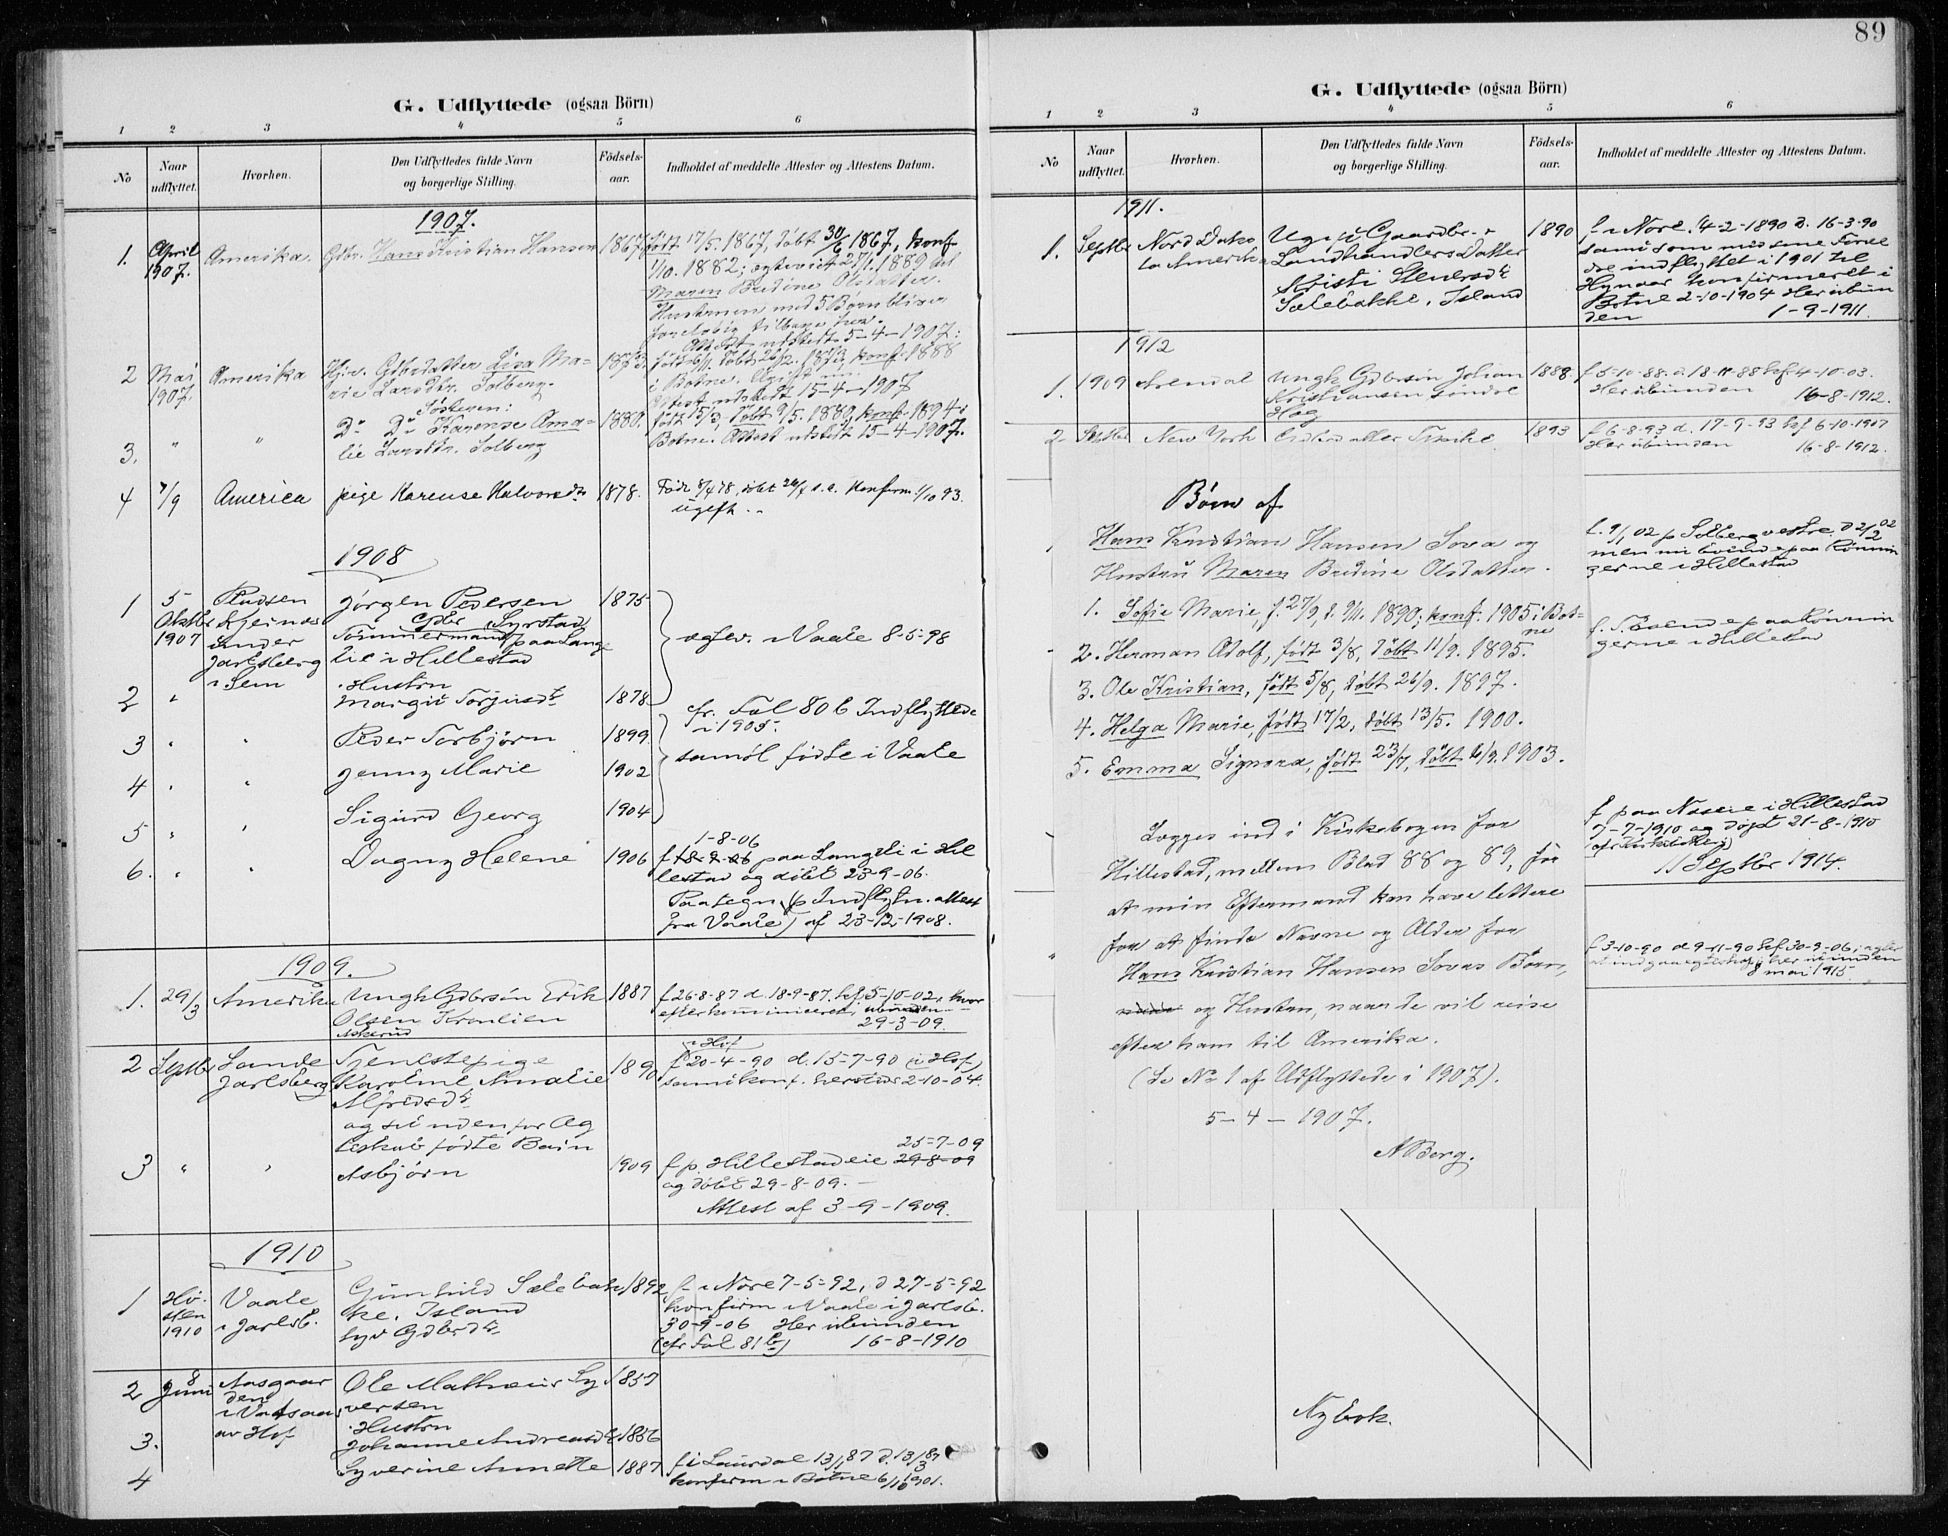 89
G. Udflyttede (ogsaa Börn)
1 2 3 4 5 6
No
Naar udflyttet.
Hvorhen.
Den Udflyttedes fulde Navn og borgerlige Stilling.
Födsels-aar.
Indholdet af meddelte Attester og Attestens Datum.
1907.
1. April 1907. Amerika. Gdbr. Hans Kristian Hansen 1867 født 17/5. 1867, døbt 30/6 1867, konf.
1/10. 1882; egteviet 27/1. 1889 til
Maren Bredine Olsdatter.
Hustruen med 5 Børn bliver
foreløbig tilbage her.
Attest udstedt 5-4-1907.
2 Mai 1907. Amerika Gdbrdatter Lisa Ma-
rie Larsdtr. Solberg. 1873. født 6/1, døbt 26/2. 1873, konf. 1888
i Botne. Ugift
Attest udstedt 15-4-1907
Søsteren:
3. " " Do Do Karense Ama-
lie Larsdtr. Solberg 1880. født 15/3, døbt 9/5. 1880, konf. 1894 i
Botne. Attest udstedt 15-4-1907.
4 7/9 America pige Karense Halvorsdtr 1878. Født 8/4 78, døbt s. a. Konfirm. 1/10 93.
ugift.
1908
1 5 Oktbr 1907
Kjernes
under
Jarlsberg
i Sem
Jørgen Pedersen 1875
Tømmermand paa Lange
lie i Hillestad
egtev. i Vaale 8-5-98
2 " Hustru
Margit Torjusdtr 1878
cfr. Fol 80 b Indflyttede
i 1905.
3 " " Peder Torbjørn 1899
samtl fødte i Vaale
4 " " Jenny Marie 1902
5 " " Sigurd Georg 1904
1-8-06
6. " " Dagny Helene 1906 f. paa Langeli i Hil
lestad og døbt 23-9-06.
Paategn. (p Indflytn. attest
fra Vaale) af 23-12-1908.
1909.
1. 29/3 Amerika Ungk Gdbrsøn Erik 1887 f 26-8-87 d. 18-9-87. kf. 5-10-02,
Olsen Kronlien
29-3-09.
2 Septbr Sande
Jarlsberg
Tjenestepige
Karoline Amalie 1890
Alfredsdtr
i Hof
f 20-4-90 d. 15-7-90 (i Hof)
samt konf. hersteds 2-10-04.
og sit udenfor Æg
teskab fødte Barn
25-7-09
3 " " Asbjørn 1909 f p. Hillestadeie 29-8-09
og døbt 29-8-09.
Attest af 3-9-1909.
1910
1 Hø-
sten
1910
Vaale
i Jarlsb.
Gunhild Sælebak 1892
ke. Island
f i Nore 7-5-92, d 27-5-92
konfirm i Vaale i Jarlsb.
30-9-06 Her ubunden
(cfr Fol 81 b) 16-8-1910
2 8 Juni Aasgaar
den
i Vassaas
av Hof
Ole Mathæus Sy 1857
versen
3. Hustru
Johanne Andreasdtr 1856
4 Syverine Annette 1887 f i Laurdal 13/1 87 d. 13/3 87
konfirm i Botne 6/10 1901.
G. Udflyttede (ogsaa Börn)
1 2 3 4 5 6
No
Naar udflyttet.
Hvorhen.
Den Udflyttedes fulde Navn og borgerlige Stilling.
Födsels-aar.
Indholdet af meddelte Attester og Attestens Datum.
1911.
1. Septbr Nord Dako
ta Amerika
Gaardbr. +
Landhandlers Datter
Kristi Stenersdtr
Sælebakke, Island
1890 f i Nore. 4-2-1890 d. 16-3-90
samt som med sine Foræl
dre indflyttet i 1901 til
konfirmeret i
Botne 2-10-1904 Her ubun
den 1-9-1911.
1912
1. 1909 Arendal Ungk Gdbrsøn Johan 1888. f 5-10-88. d. 18-11-88 kf 4-10-03.
Kristiansen Søndre
Hag
Her ubunden 16-8-1912.
2 Septbr New York 1893 f 6-8-93 d. 17-9-93 kf 6-10-1907
Her ubunden 16-8-1912.
Børn af
Hans Kristian Hansen Sova og
Hustru Maren Bredine Olsdatter.
1. Sofie Marie, f. 27/9, d. 9/11. 1890; konf. 1905 i Bot-
ne
2. Herman Adolf, født 3/8, døbt 11/9. 1895.
3. Ole Kristian, født 5/8, døbt 26/9. 1897.
4. Helga Marie, født 17/2, døbt 13/5. 1900.
5. Emma Signora, født 23/7, døbt 6/9. 1903.
Lægges ind i Kirkebogen for
Hillestad, mellem Blad 88 og 89, for
at min Eftermand kan have lettere
for at finde Navne og Alder for
Hans Kristian Hansen Sovas Børn,
og Hustru, naar de vil reise
efter ham til Amerika.
(Se No 1 af Udflyttede i 1907).
5-4-1907.
NBerg.
f. 9/1 02 p Solberg vestre. d 2/2 02
men nu boende paa Rønnin
gerne i Hillestad
f. S. Boende paa Rønnin
gerne i Hillestad
f paa Naseie i Hillestad
7-7-1910 og døpt 21-8-1910
11 Septbr 1914.
f 3-10-90 d 9-11-90 kf 30-9-06; agter
at indgaa egteskap; her ubunden
8 mai 1915.
Ny bok.